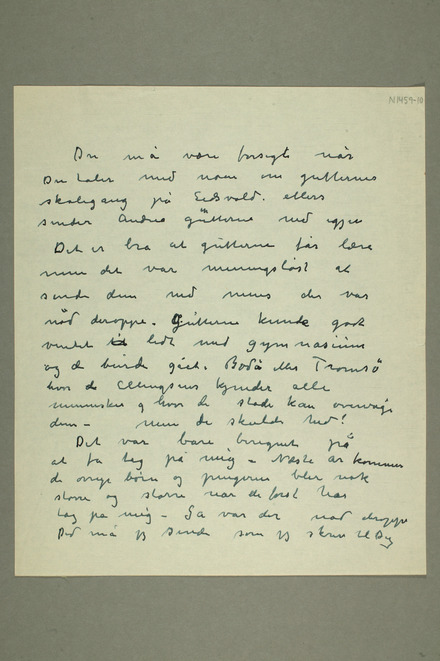 N1459-10
Du må være forsigti når
Du taler med noen om gutternes
skolegang på Eidsvold. ellers
sender Andrea gutterne ned igjen
Det er bra at gutterne får lære
men det var meningsløst at
sende dem ned mens der var
nød deroppe. Gutterne kunde godt
ventet lidt med gymnasium
og de burde gået. Bodö eller Tromsö
hvor de Ellingsens kjender alle
mennesker og hvor de stade kan overvåge
dem – men de skulde hid!
Det var bare beregnet på
at få tag på mig – Næste år kommer
de øvrige børn og pengene blir nok
større og større når de først har
tag på mig – Så var der nød deroppe
Det må jeg sende som jeg skrev til Dig